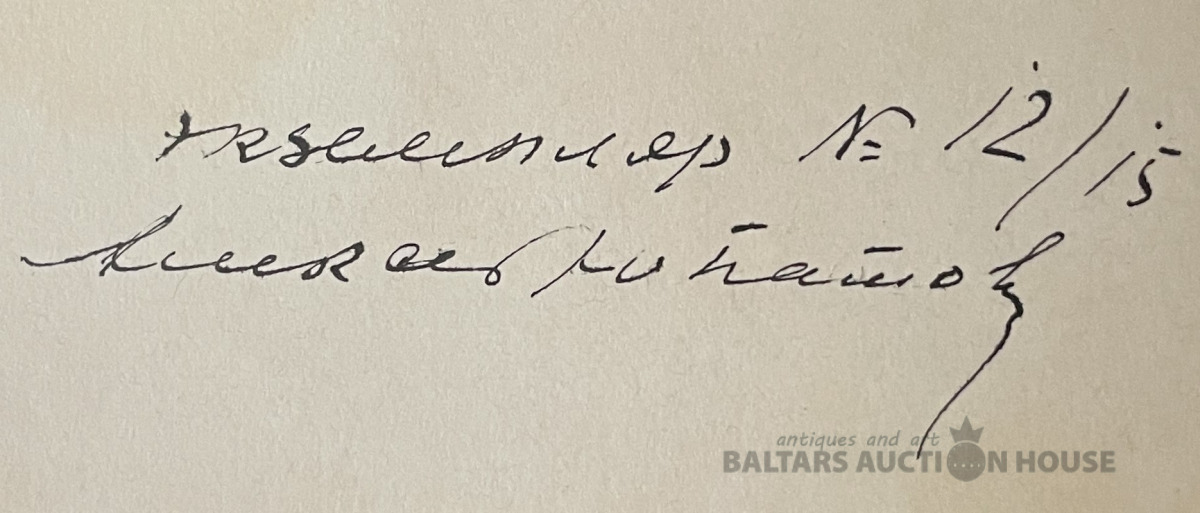 экземпляр № 12/15
Алексей Юпатов
antiques and art
BALTARS AUCTION HOUSE